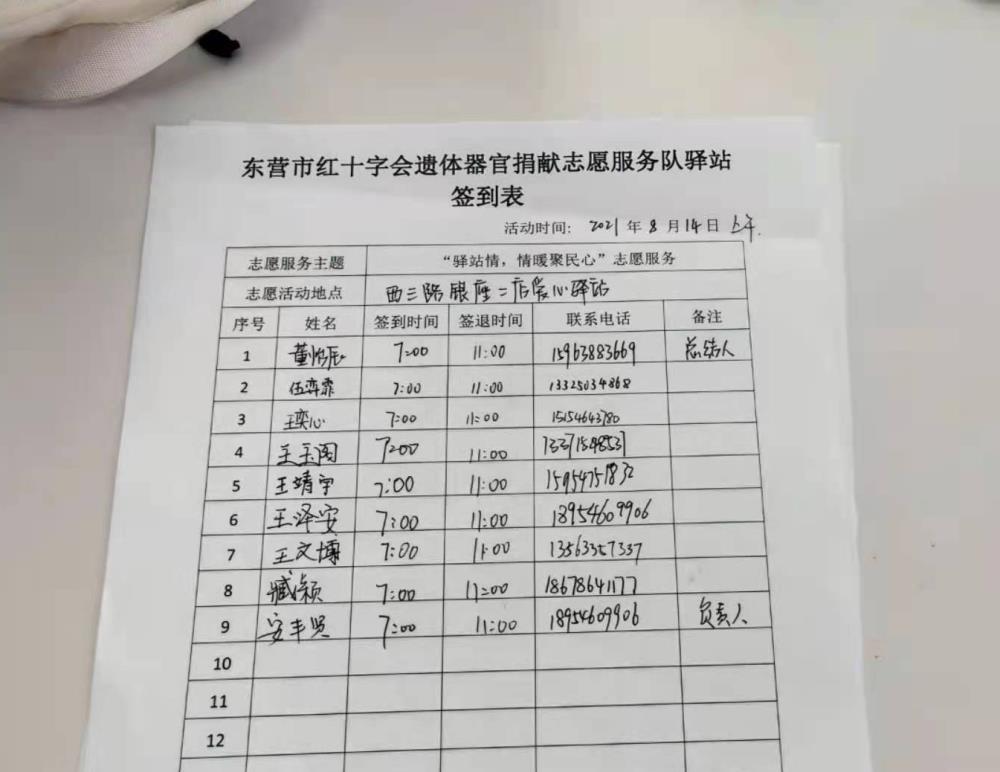 东营市红十字会遗体器官捐献志愿服务队驿站
签到表
活动时间: 2021 年 8 月 14 日 上午.
志愿服务主题 “驿站情,情暖聚民心”志愿服务
志愿活动地点 西三路银座二店爱心驿站
序号 姓名 签到时间 签退时间 联系电话 备注
1 董 7:00 11:00 15963883669 总结人
2 伍弈霏 7:00 11:00 13325034868
3 王奕心 7:00 11:00 15154643780
4 王玉阁 7:00 11:00 13371548531
5 王靖宇 7:00 11:00 15954751832
6 王泽安 7:00 11:00 18954609906
7 王文博 7:00 11:00 13563357337
8 臧颖 7:00 11:00 18678641177
9 安丰贤 7:00 11:00 18954609906 负责人
10
11
12